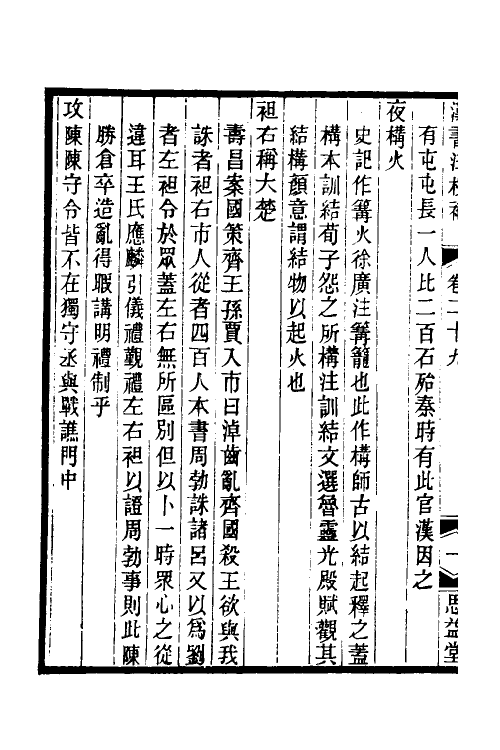 漢書注校補 卷二十九 一 思益堂
有屯屯長一人比二百石殆秦時有此官漢因之
夜構火
史記作篝火徐廣注篝籠也此作構師古以結起釋之蓋
構本訓結荀子怨之所構注訓結文選魯靈光殿賦觀其
結構顏意謂結物以起火也
袒右稱大楚
壽昌案國策齊王孫賈入市曰淖齒亂齊國殺王欲與我
誅者袒右市人從者四百人本書周勃誅諸呂又以爲劉
者左袒令於眾蓋左右無所區別但以卜一時眾心之從
違耳王氏應麟引儀禮覲禮左右袒以證周勃事則此陳
勝倉卒造亂得暇講明禮制乎
攻陳陳守令皆不在獨守丞與戰譙門中